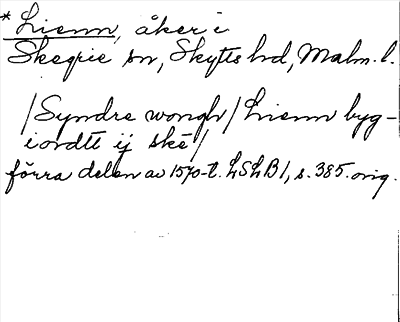 * Lienn, åker i
Skegrie sn, Skytts hd, Malm. l.
/Syndre wongh/ Lienn byg-
iordtt ij ske/
förra delen av 1570-t. LSLB 1, s. 385. orig.